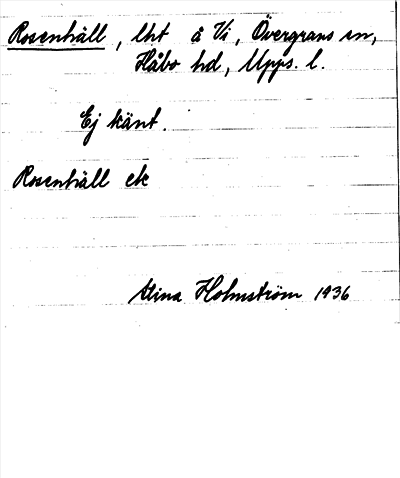 Rosenhäll, lht å Vi, Övergrans sn,
Håbo hd, Upps. l.
Ej känt.
Rosenhäll ek
Stina Holmström 1936